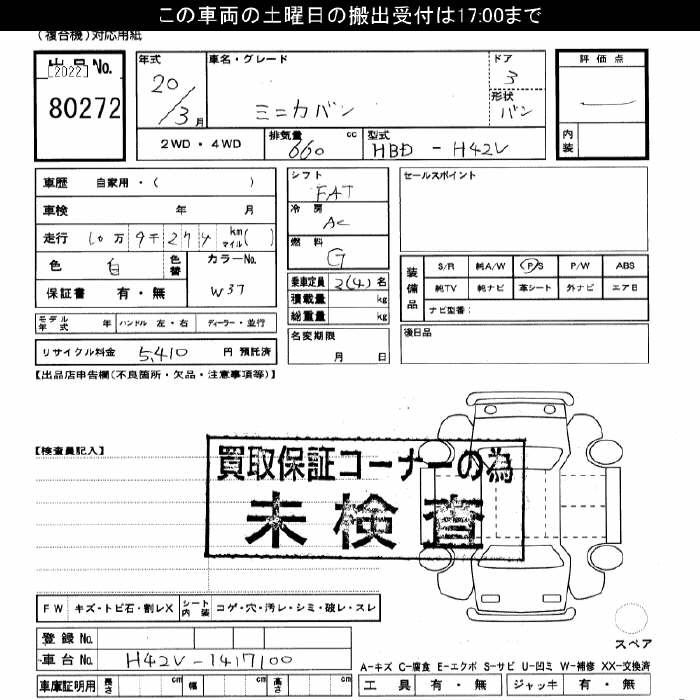 この車両の土曜日の搬出受付は17:00まで
(複合機)対応用紙
出品No. [2022] 80272
年式 20/3月
車名・グレード ミニカバン
ドア 3
形状 バン
評価点
内装
2WD・4WD
排気量 660 cc
型式 HBD - H42V
車歴 自家用・( )
車検 年 月
走行 10万 9千 2 7 4 km マイル( )
色 白 色替
カラーNo. W37
保証書 有・無
モデル年式 年 ハンドル 左・右 ディーラー・並行
リサイクル料金 5,410 円 預託済
シフト FAT
冷房 AC
燃料 G
乗車定員 2(4) 名
積載量 kg
総重量 kg
名変期限 月 日
セールスポイント
装備品 S/R 純A/W P/S P/W ABS
純TV 純ナビ 革シート 外ナビ エアB
ナビ型番:
後日品
【出品店申告欄(不良箇所・欠品・注意事項等)】
【検査員記入】
買取保証コーナーの為
未検査
FW キズ・トビ石・割レX シート内装 コゲ・穴・汚レ・シミ・破レ・スレ
登録No.
車台No. H42V-1417100
車庫証明用 長さ cm 幅 cm 高さ cm
スペア
A-キズ C-腐食 E-エクボ S-サビ U-凹ミ W-補修 XX-交換済
工具 有・無 ジャッキ 有・無